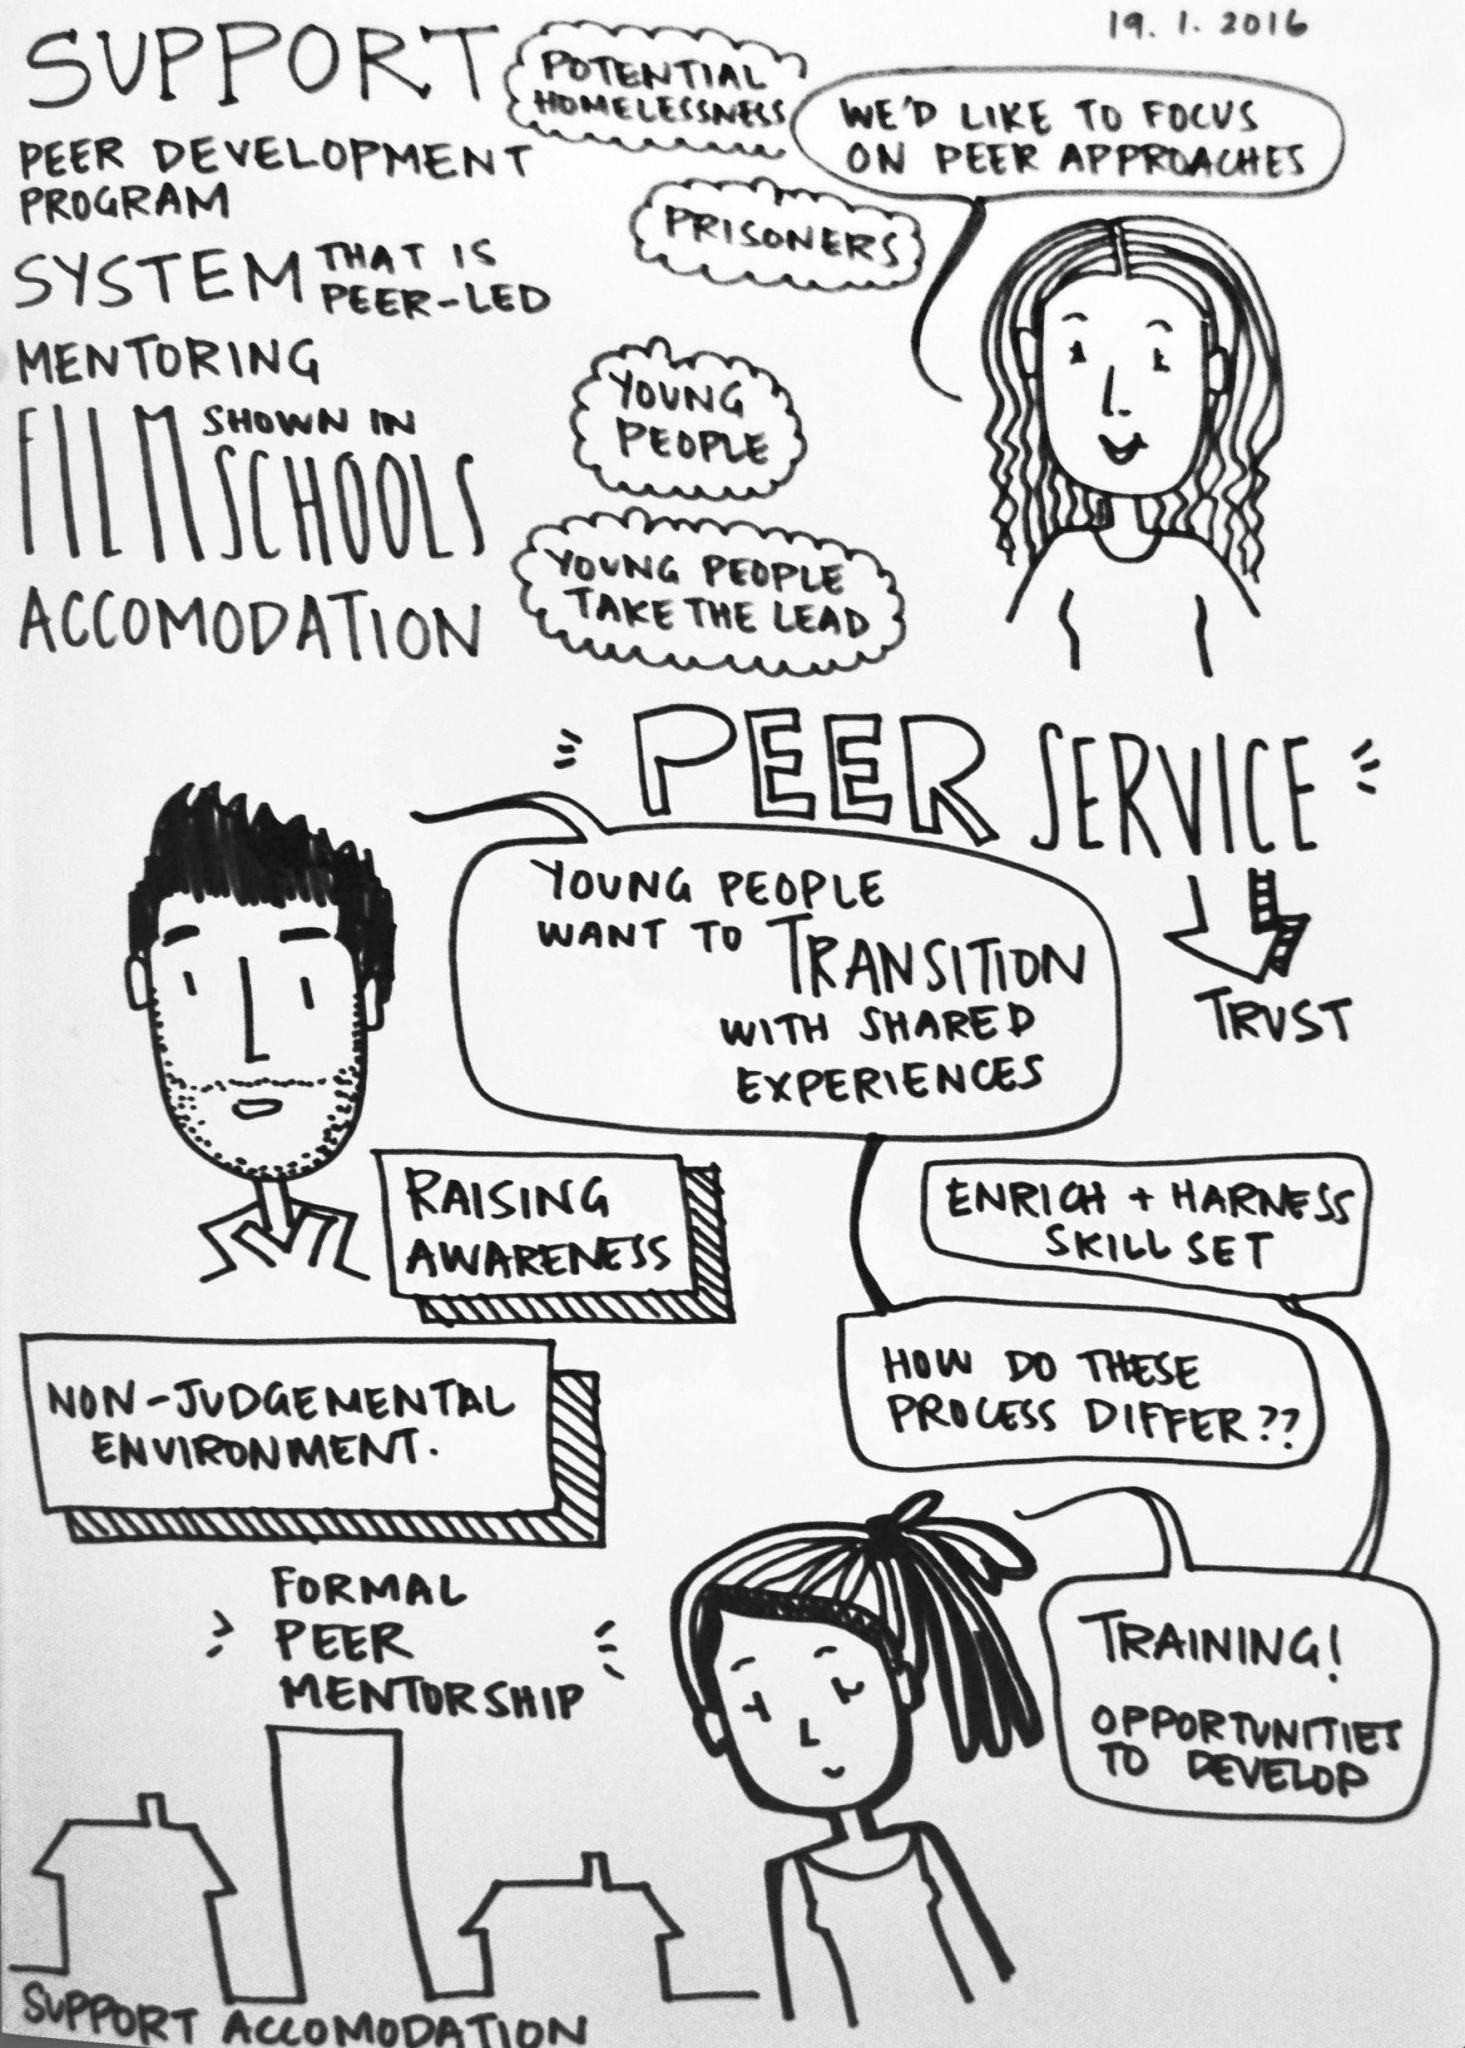 19. 1. 2016
SUPPORT
PEER DEVELOPMENT
PROGRAM
SYSTEM THAT IS
PEER-LED
MENTORING
FILM SHOWN IN
SCHOOLS
ACCOMODATION
POTENTIAL
HOMELESSNESS
PRISONERS
YOUNG
PEOPLE
YOUNG PEOPLE
TAKE THE LEAD
WE'D LIKE TO FOCUS
ON PEER APPROACHES
PEER SERVICE
TRUST
YOUNG PEOPLE
WANT TO TRANSITION
WITH SHARED
EXPERIENCES
RAISING
AWARENESS
ENRICH + HARNESS
SKILL SET
HOW DO THESE
PROCESS DIFFER??
NON-JUDGEMENTAL
ENVIRONMENT.
FORMAL
PEER
MENTORSHIP
TRAINING!
OPPORTUNITIES
TO DEVELOP
SUPPORT ACCOMODATION